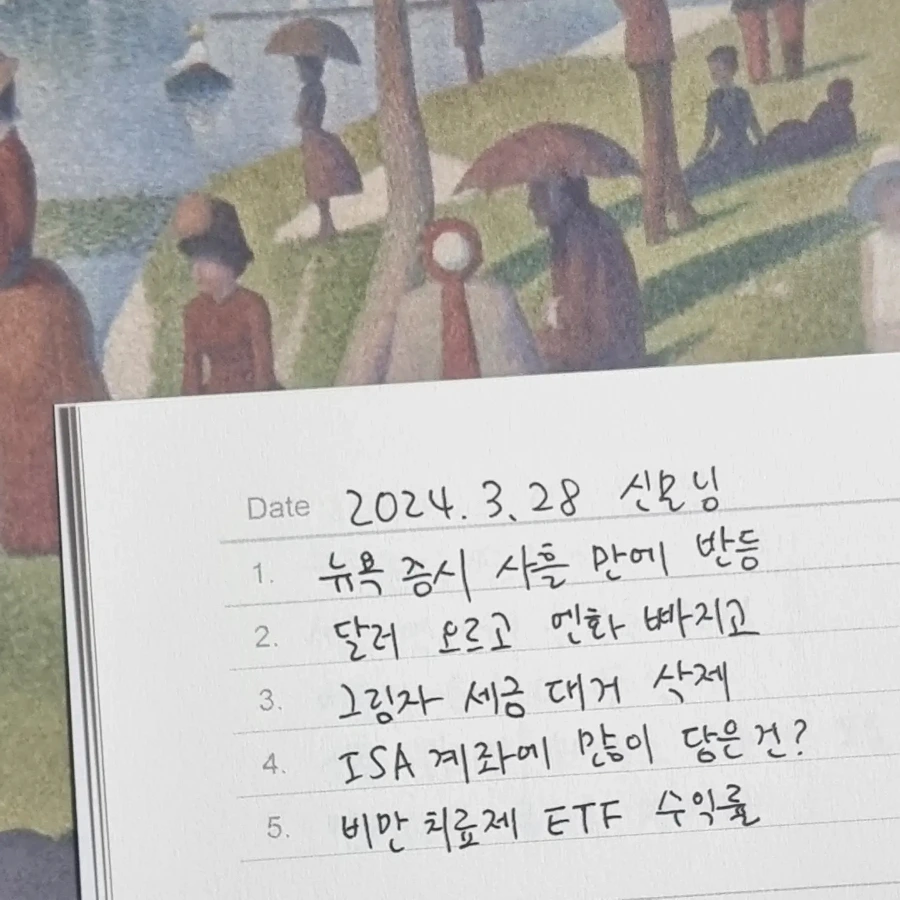 Date 2024.3.28 신모닝
1. 뉴욕 증시 사흘 만에 반등
2. 달러 오르고 엔화 빠지고
3. 그림자 세금 대거 삭제
4. ISA 계좌에 많이 담은 건?
5. 비만 치료제 ETF 수익률